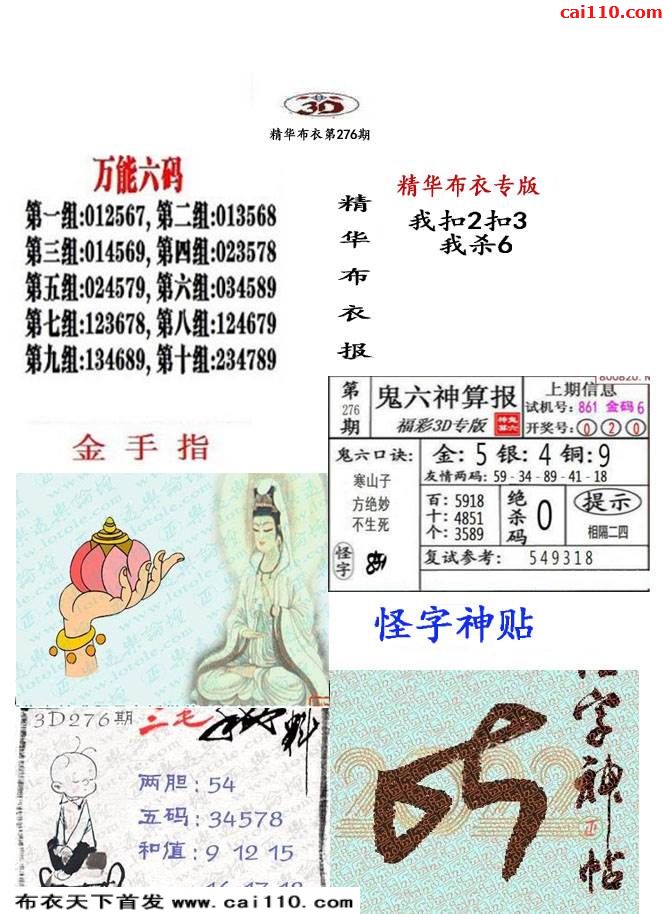 cai110.com
3D
精华布衣第276期
万能六码
第一组:012567,第二组:013568
第三组:014569,第四组:023578
第五组:024579,第六组:034589
第七组:123678,第八组:124679
第九组:134689,第十组:234789
精华布衣报
精华布衣专版
我扣2扣3
我杀6
第276期
鬼六神算报
福彩3D专版
上期信息
试机号: 861 金码 6
开奖号: 0 2 0
鬼六口诀:
寒山子
方绝妙
不生死
怪字
金: 5 银: 4 铜: 9
友情两码: 59-34-89-41-18
百: 5918
十: 4851
个: 3589
绝杀码 0
提示
相隔二四
复试参考: 549318
金手指
怪字神贴
3D276期
三毛
两胆: 54
五码: 34578
和值: 9 12 15
16 17 18
字神帖
布衣天下首发 www.cai110.com